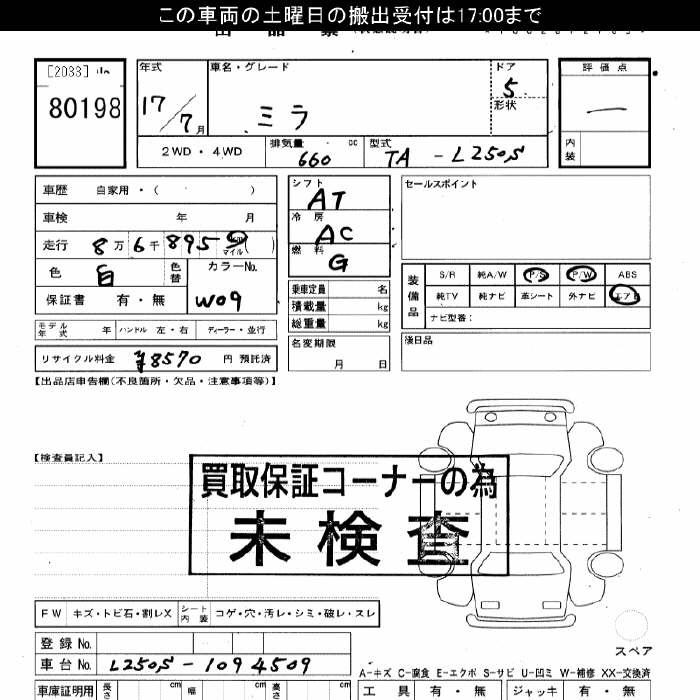 この車両の土曜日の搬出受付は17:00まで
出品票
[2033]
80198
年式 車名・グレード ドア 評価点
17/7月 ミラ 5 —
形状
2WD・4WD 排気量 660 cc 型式 TA-L250S 内装
車歴 自家用・( )
シフト AT
セールスポイント
車検 年 月
冷房 AC
走行 8万6千895 km マイル ( )
燃料 G
色 白 色替 カラーNo. W09
装備品 S/R 純A/W P/S P/W ABS
保証書 有・無
乗車定員 名
純TV 純ナビ 革シート 外ナビ エアB
積載量 kg
ナビ型番:
総重量 kg
モデル年式 年 ハンドル 左・右 ディーラー・並行
名変期限 月 日
後日品
リサイクル料金 ¥8570 円 預託済
【出品店申告欄(不良箇所・欠品・注意事項等)】
【検査員記入】
買取保証コーナーの為
未検査
FW キズ・トビ石・割レX シート内装 コゲ・穴・汚レ・シミ・破レ・スレ
スペア
登録No.
車台No. L250S-1094509
A-キズ C-腐食 E-エクボ S-サビ U-凹ミ W-補修 XX-交換済
車庫証明用 長さ cm 幅 cm 高さ cm 工具 有・無 ジャッキ 有・無